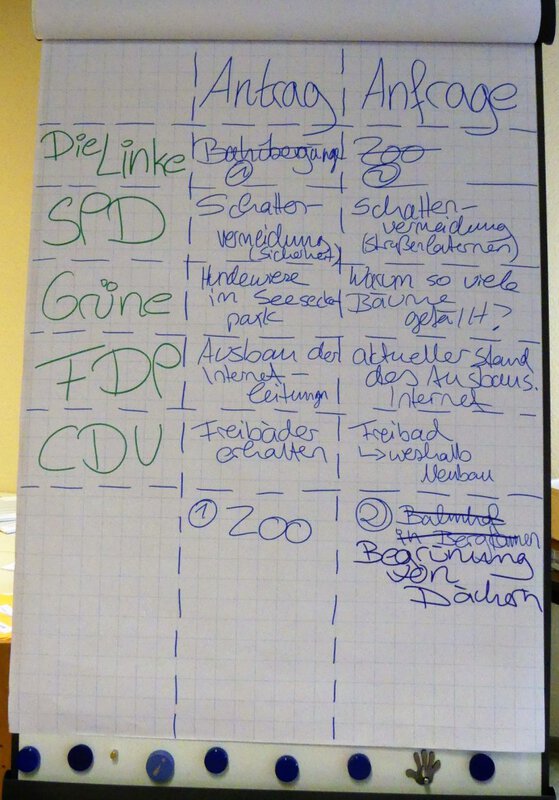 Antrag Anfrage
Die Linke Bahnübergang Zoo
① ②
SPD Schatten- Schatten-
vermeidung vermeidung
(Sicherheit) (Straßenlaternen)
Grüne Hundewiese Warum so viele
im Seeseck Bäume
park gefällt?
FDP Ausbau der aktueller Stand
Internet- des Ausbaus.
leitungn Internet
CDU Freibäder Freibad
erhalten ↳ weshalb
Neubau
① ZOO ② Bahnhof
in Bergkamen
Begrünung
von
Dächern